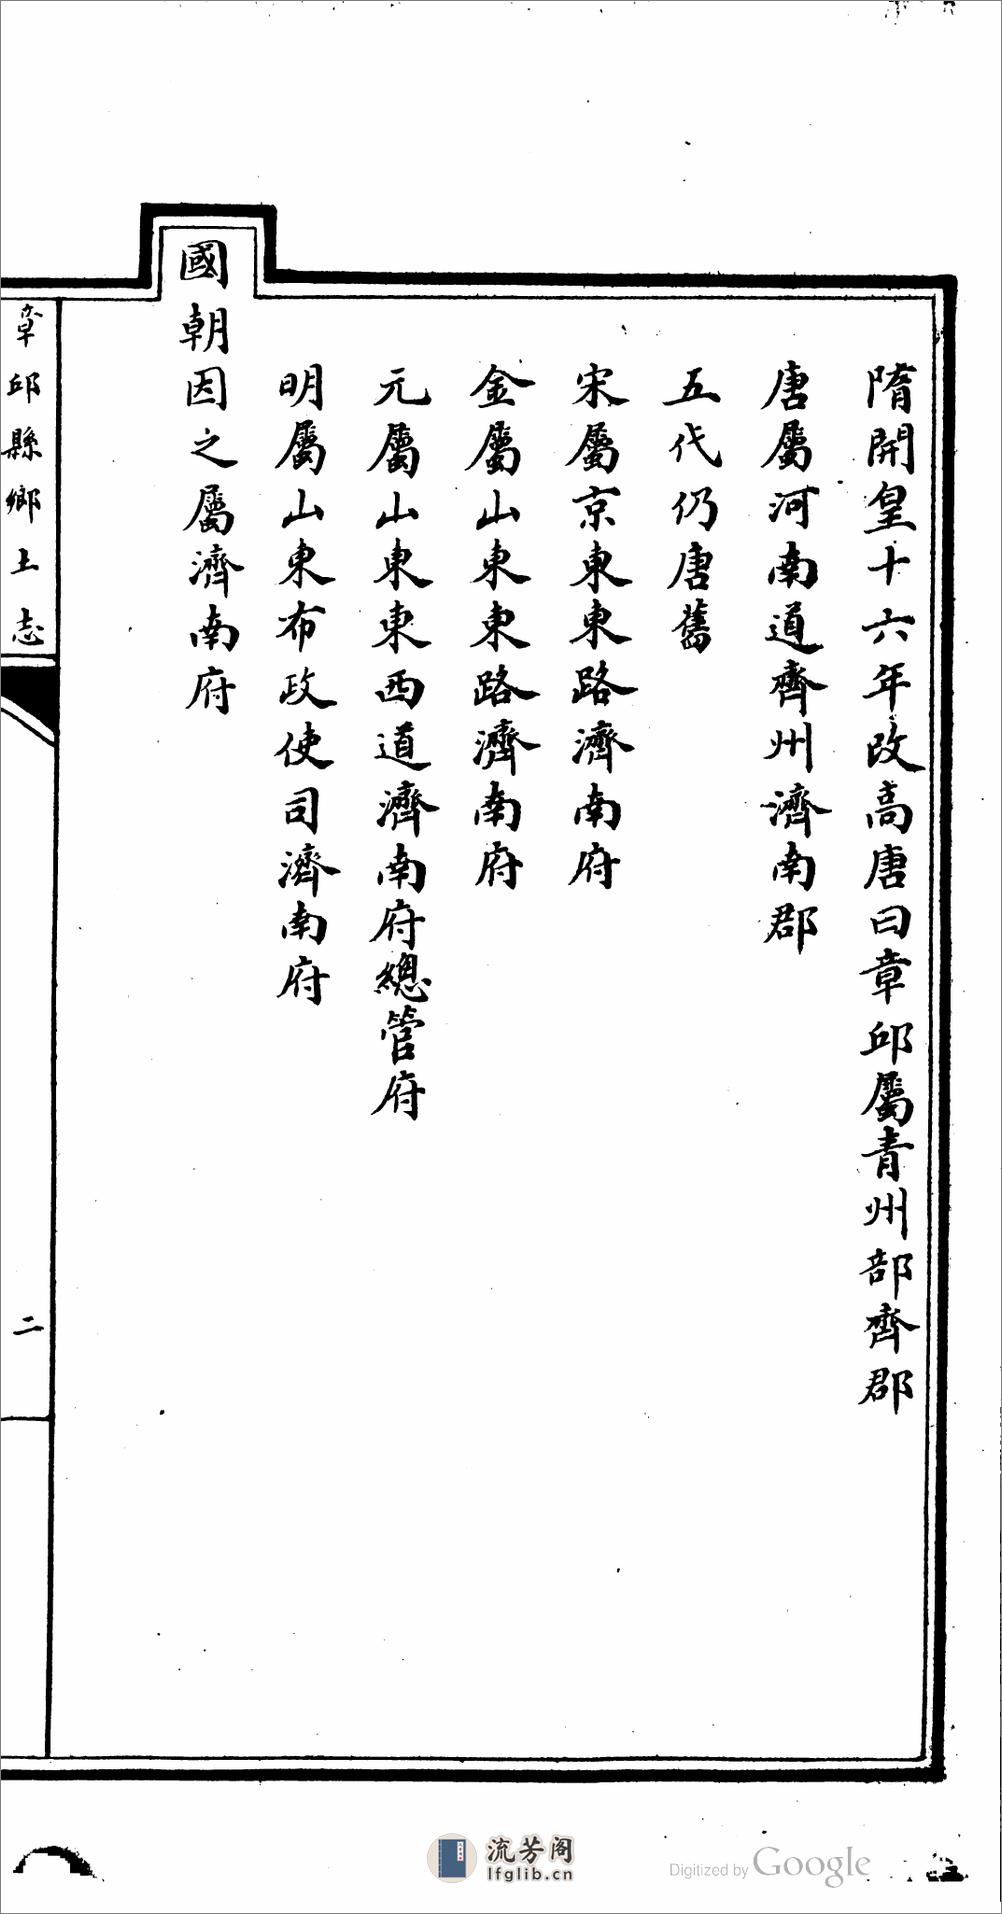 隋開皇十六年改高唐曰章邱屬青州部齊郡
唐屬河南道齊州濟南郡
五代仍唐舊
宋屬京東東路濟南府
金屬山東東路濟南府
元屬山東東西道濟南府總管府
明屬山東布政使司濟南府
國朝因之屬濟南府
章邱縣鄉土志
二
流芳阁
lfglib.cn
Digitized by Google